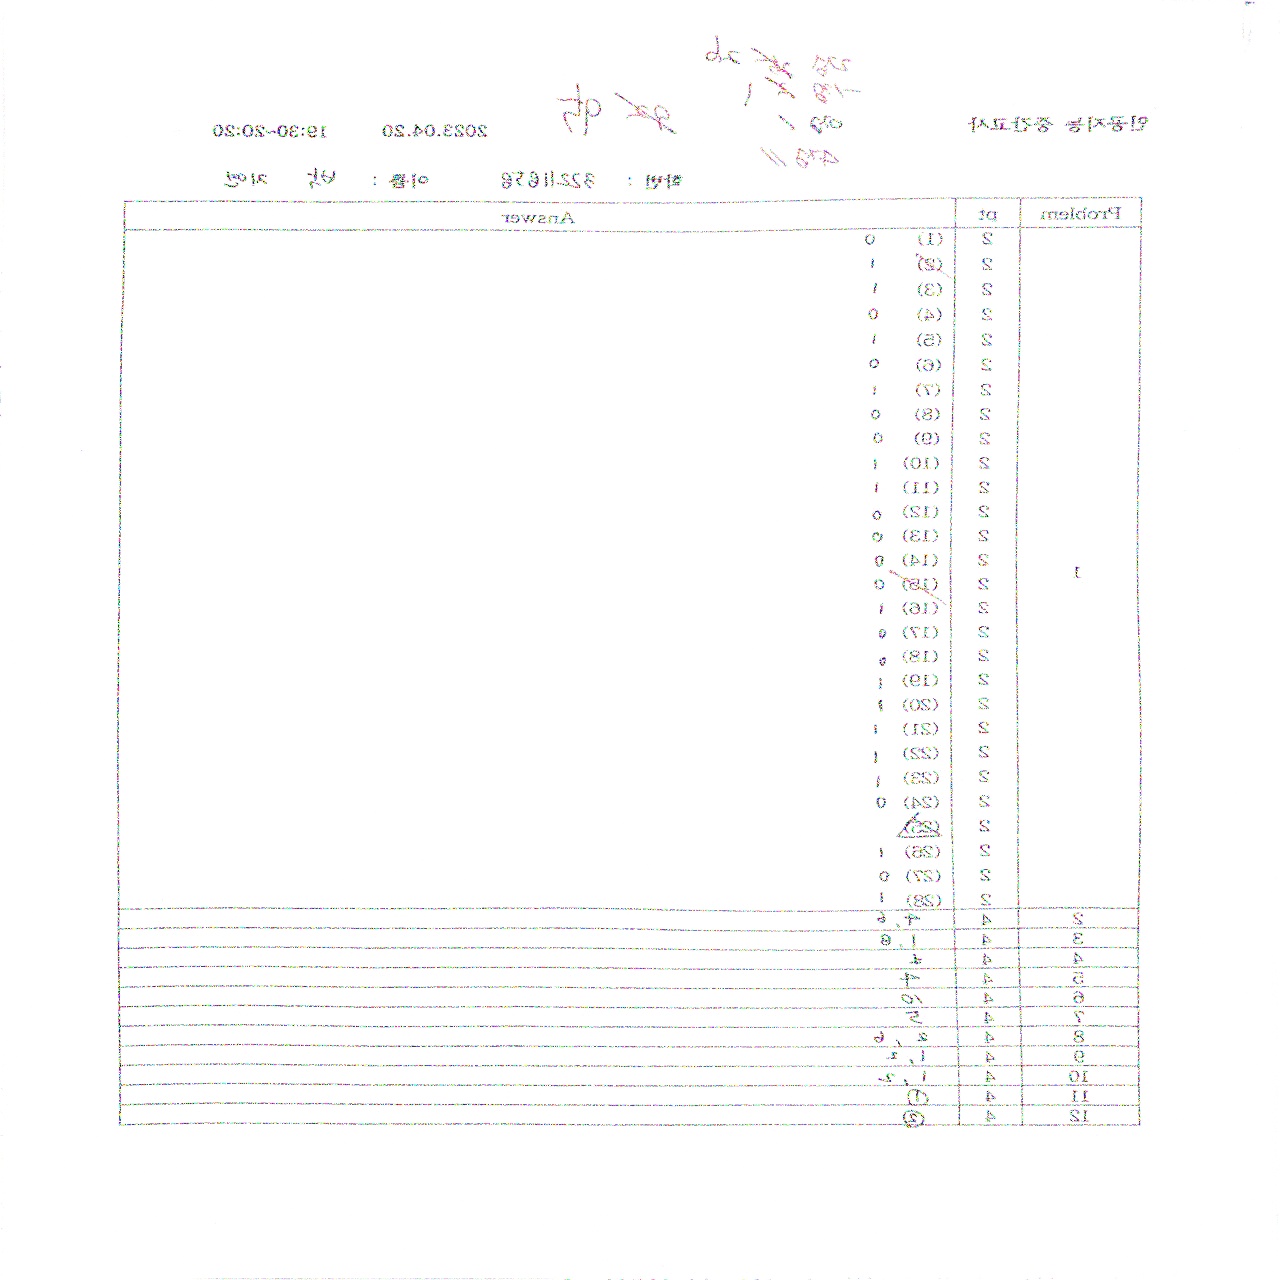 인공지능 중간고사 2023.04.20 19:30~20:20
학번 : 32211658 이름 : 박 지연
Problem pt Answer
1
2 (1) 0
2 (2) 1
2 (3) 1
2 (4) 0
2 (5) 1
2 (6) 0
2 (7) 1
2 (8) 0
2 (9) 0
2 (10) 1
2 (11) 1
2 (12) 0
2 (13) 0
2 (14) 0
2 (15) 0
2 (16) 1
2 (17) 0
2 (18) 0
2 (19) 1
2 (20) 1
2 (21) 1
2 (22) 1
2 (23) 1
2 (24) 0
2 (25)
2 (26) 1
2 (27) 0
2 (28) 1
2 4 4, 6
3 4 1, 8
4 4 4
5 4 4
6 4 6
7 4 5
8 4 2, 6
9 4 1, 2
10 4 1, 7
11 4
12 4